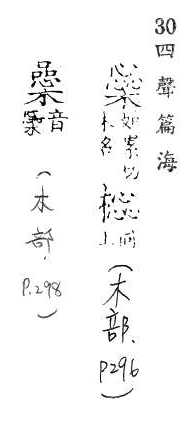 30 四聲篇海
橤 如累切木名 同上 (木部. P296)
音 (木部. P.298)